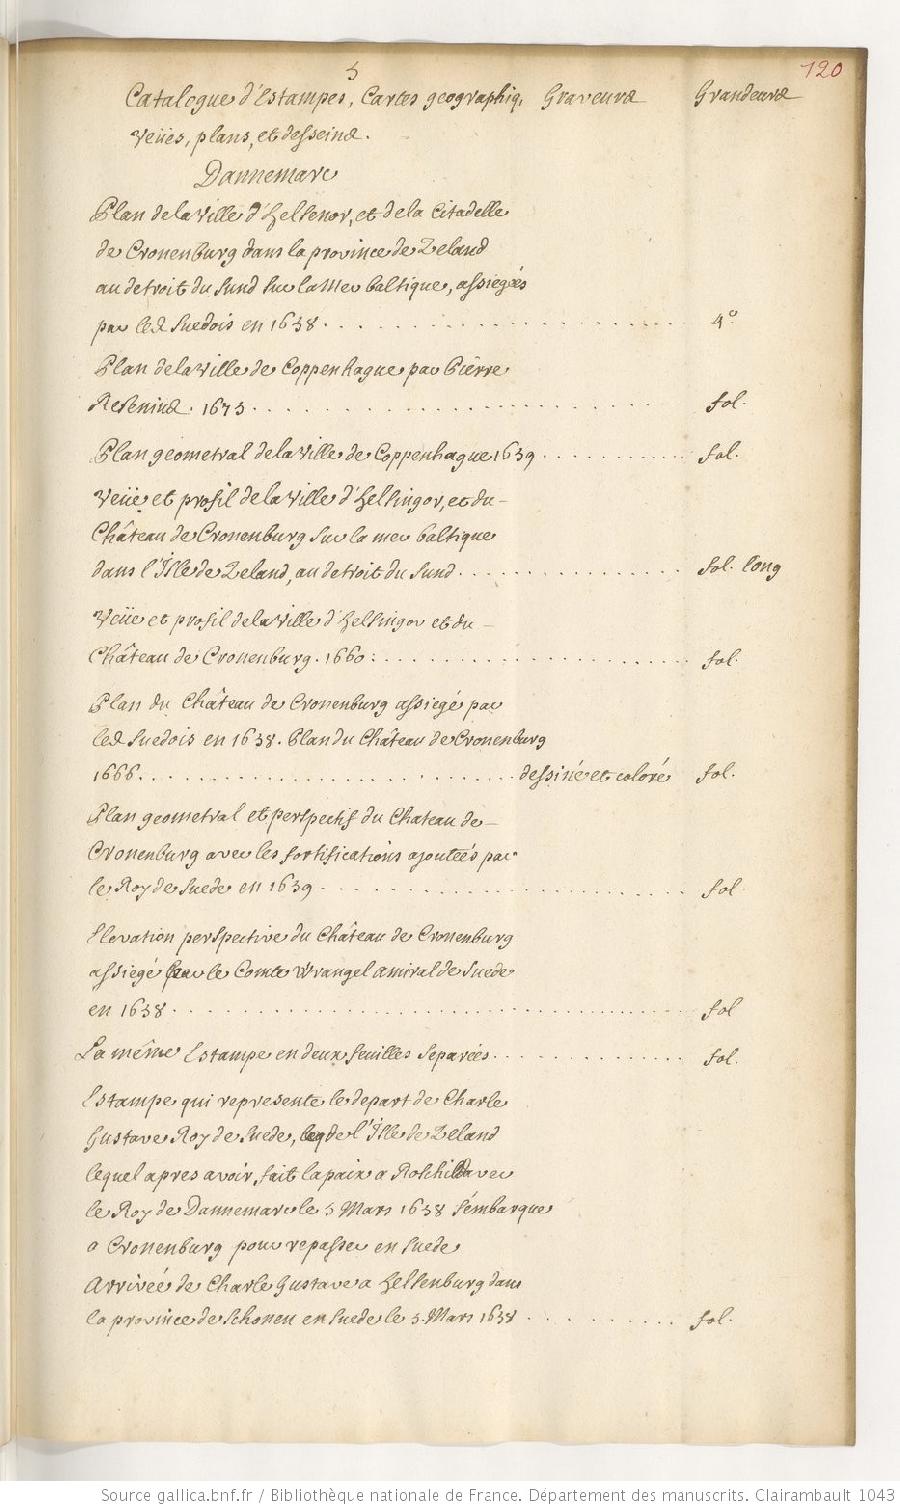 5
120
Catalogue d'Estampes, Cartes geographiq, Graveurs Grandeurs
Veües, plans, et desseins.
Dannemarc
Plan de la Ville d'Helsenor, et de la Citadelle
de Cronenburg dans la province de Zeland
au detroit du Sund sur la Mer baltique, assiegées
par les Suedois en 1658. 4°
Plan de la Ville de Coppenhague par Pierre
Resenius. 1673. fol.
Plan geometral de la Ville de Coppenhague 1659 fol.
Veüe et profil de la Ville d'Helsingor, et du-
Château de Cronenburg sur la mer baltique
dans l'Isle de Zeland, au detroit du Sund. fol. long
Veüe et profil de la Ville d'Helsingor et du-
Château de Cronenburg. 1660: fol.
Plan du Château de Cronenburg assiegé par
les Suedois en 1658. Plan du Château de Cronenburg
1666. dessiné et coloré fol.
Plan geometral et perspectif du Chateau de-
Cronenburg avec les fortifications ajoutées par
le Roy de Suede en 1659 fol
Elevation perspective du Château de Cronenburg
assiegé par le Comte Wrangel amiral de Suede
en 1658. fol
La même Estampe en deux feuilles separées. fol.
Estampe qui represente le depart de Charle
Gustave Roy de Suede, de l'Isle de Zeland
lequel apres avoir fait la paix a Roschild avec
le Roy de Dannemarc le 5 Mars 1658 s'embarque
a Cronenburg pour repasser en Suede
Arrivée de Charle Gustave a Helsenburg dans
la province de Schonen en Suede le 5. Mars 1658 fol.
Source gallica.bnf.fr / Bibliothèque nationale de France. Département des manuscrits. Clairambault 1043